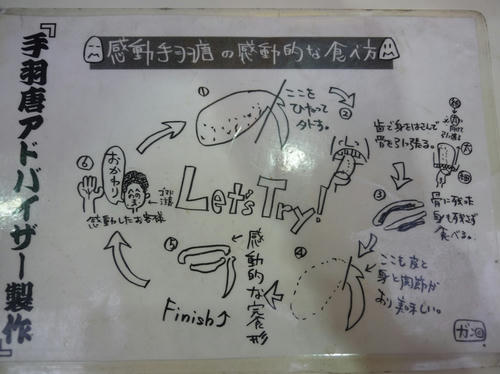 感動手羽唐の感動的な食べ方
『手羽唐アドバイザー製作』
①
ここを
ひねって
外す。
②
歯で身をはさんで
骨を引っ張る。
③
骨に残った
身も残さず
食べる。
④
ここも皮と
身と関節が
あり美味しい。
⑤
感動的な完食形
Finish
⑥
おかわり
感動したお客様
Let's Try!